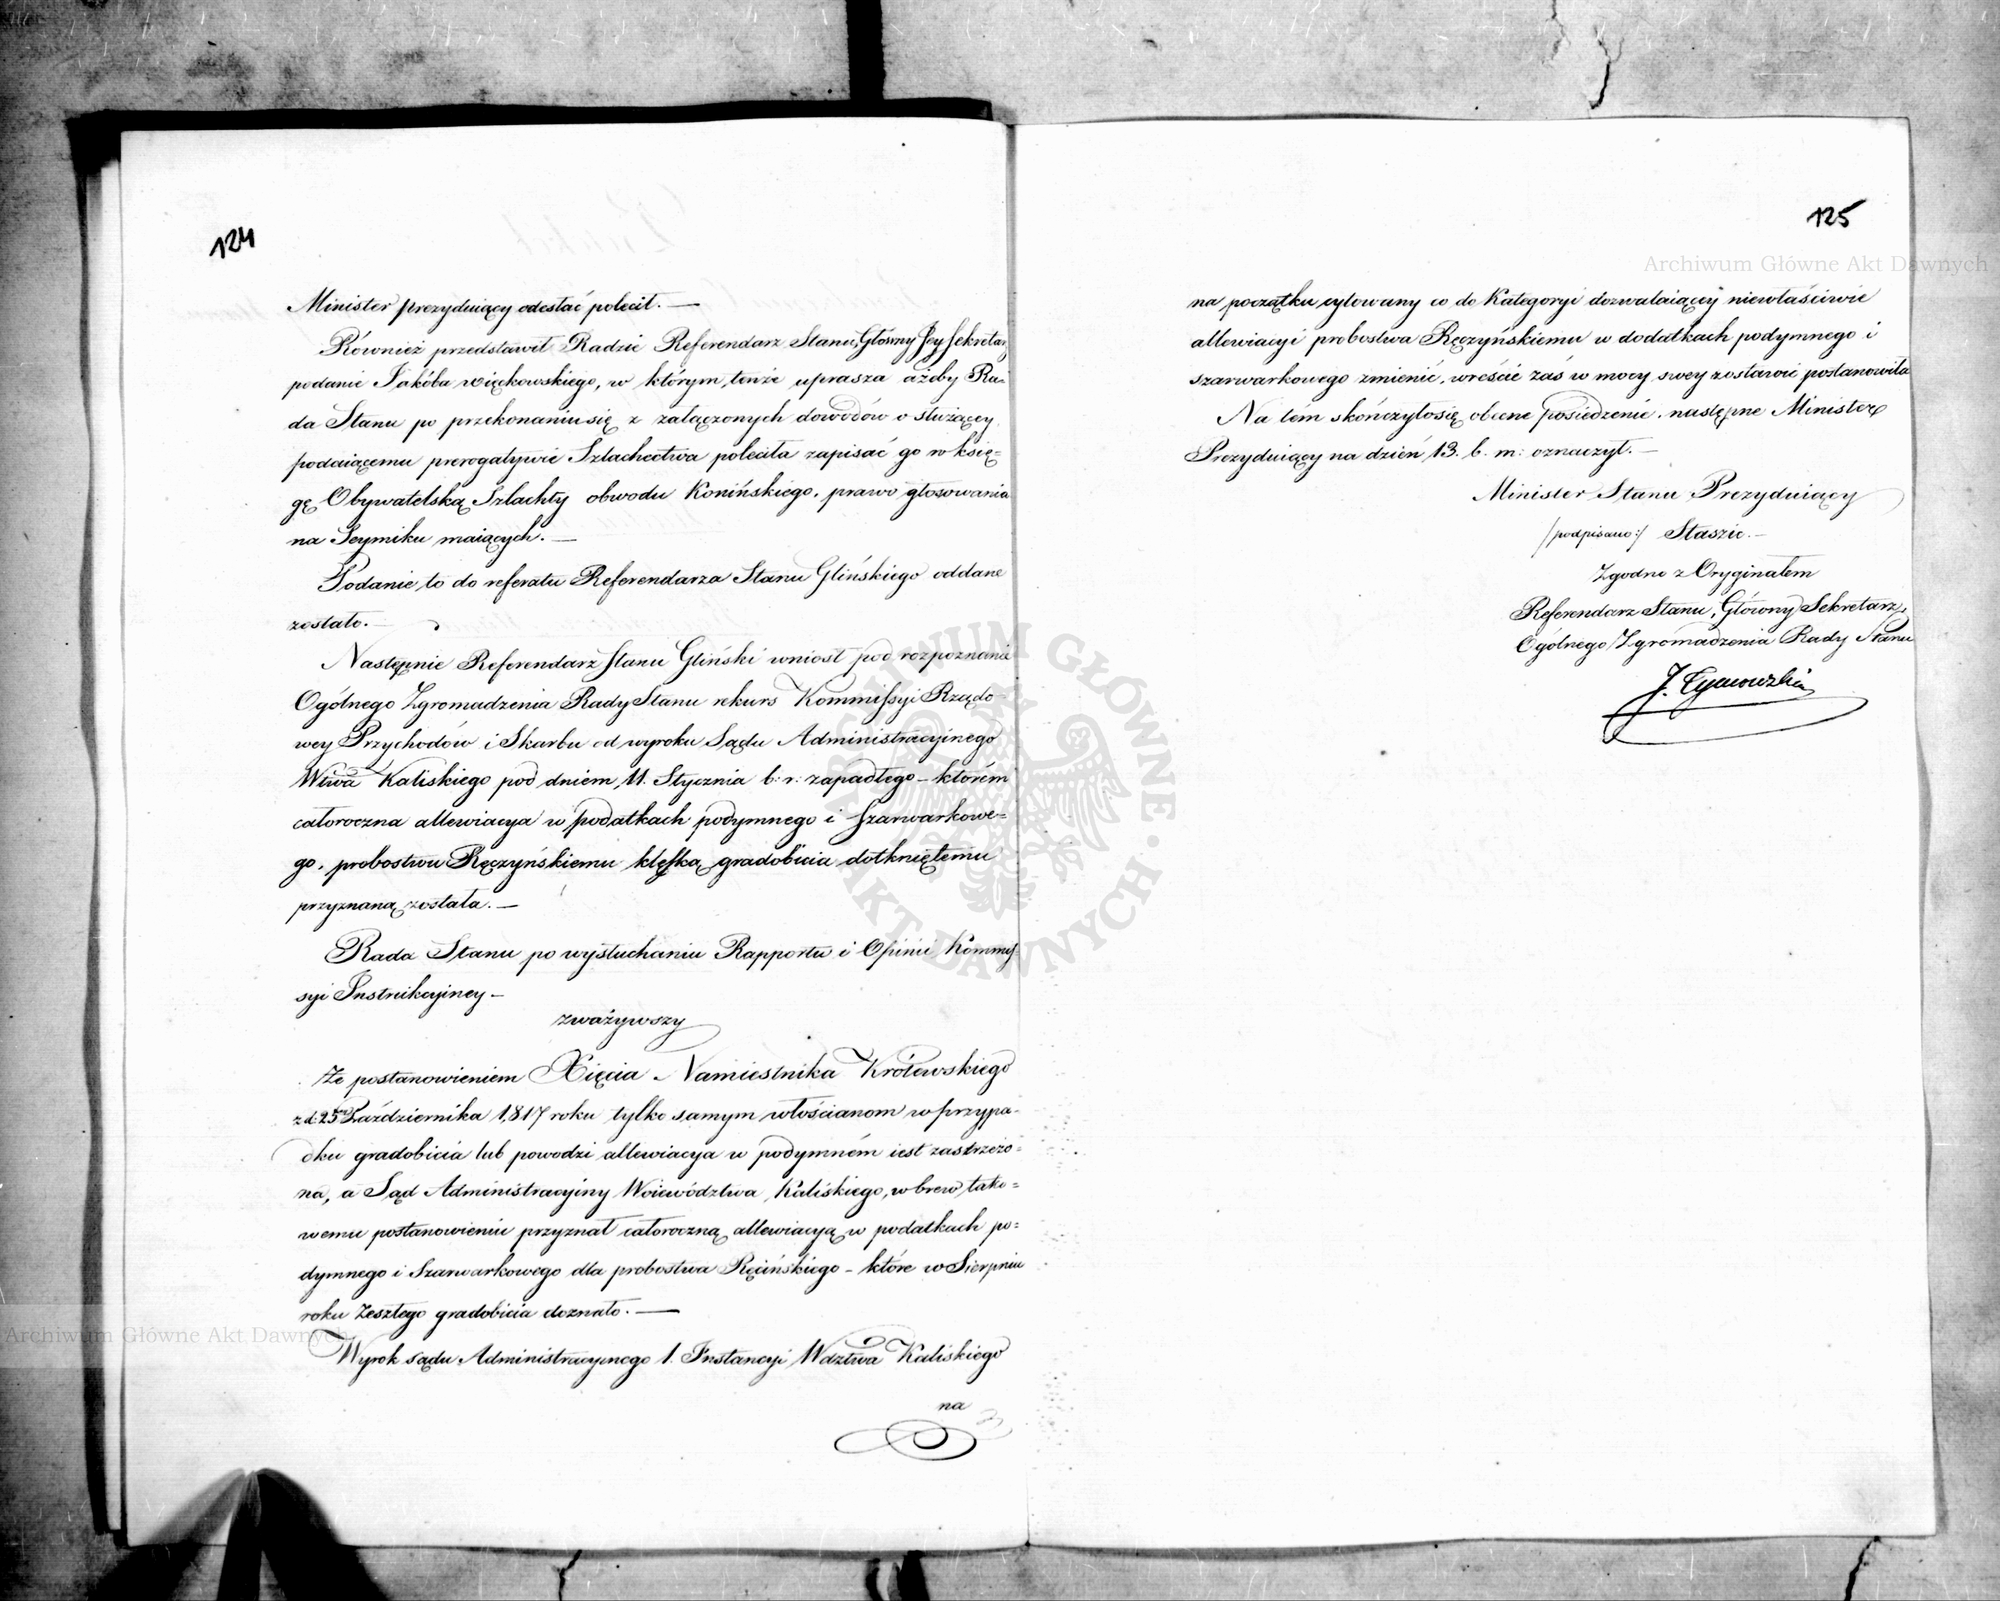 124
Minister prezyduiący odesłać polecił. —
Również przedstawił Radzie Referendarz Stanu, Główny Jey Sekretarz
podanie Jakóba Więckowskiego, w którym tenże uprasza ażeby Ra-
da Stanu po przekonaniu się z załączonych dowodów o służącey
podaiącemu prerogatywie Szlachectwa poleciła zapisać go w księ-
gę Obywatelską Szlachty obwodu Konińskiego, prawo głosowania
na Seymiku maiących. —
Podanie to do referatu Referendarza Stanu Glińskiego oddane
zostało. —
Następnie Referendarz Stanu Gliński wniosł pod rozpoznanie
Ogólnego Zgromadzenia Rady Stanu rekurs Kommissyi Rządo-
wey Przychodów i Skarbu od wyroku Sądu Administracyinego
Wtwa Kaliskiego pod dniem 11. Stycznia b: r: zapadłego – którém
całoroczna allewiacya w podatkach podymnego i szarwarkowe=
go, probostwu Ręczyńskiemu klęską gradobicia dotkniętemu
przyznaną została. —
Rada Stanu po wysłuchaniu Rapportu i Opinii Kommis-
syi Instrukcyiney –
zważywszy
Że postanowieniem Xięcia Namiestnika Królewskiego
z d: 25 Października 1817 roku tylko samym włościanom w przypa-
dku gradobicia lub powodzi allewiacya w podymném iest zastrzeżo=
na, a Sąd Administracyiny Woiewództwa Kaliskiego, wbrew tako=
wemu postanowieniu przyznał całoroczną allewiacyą w podatkach po=
dymnego i Szarwarkowego dla probostwa Ręcińskiego – które w Sierpniu
roku Zeszłego gradobicia doznało. —
Wyrok sądu Administracyinego 1. Instancyi Wdztwa Kaliskiego
na
125
na początku cytowany co do Kategoryi dozwalaiącey niewłaściwie
allewiacyi probostwa Ręczyńskiemu w dodatkach podymnego i
szarwarkowego zmienić, wreście zaś w mocy swey zostawić postanowiła
Na tém skończyło się obecne posiedzenie, następne Minister
Prezyduiący na dzień 13. b. m: oznaczył. —
Minister Stanu Prezyduiący
/podpisano:/ Staszic. –
Zgodno z Oryginałem
Referendarz Stanu, Główny Sekretarz
Ogólnego Zgromadzenia Rady Stanu
J. Tymowski
Archiwum Główne Akt Dawnych
Archiwum Główne Akt Dawnych
ARCHIWUM GŁÓWNE AKT DAWNYCH